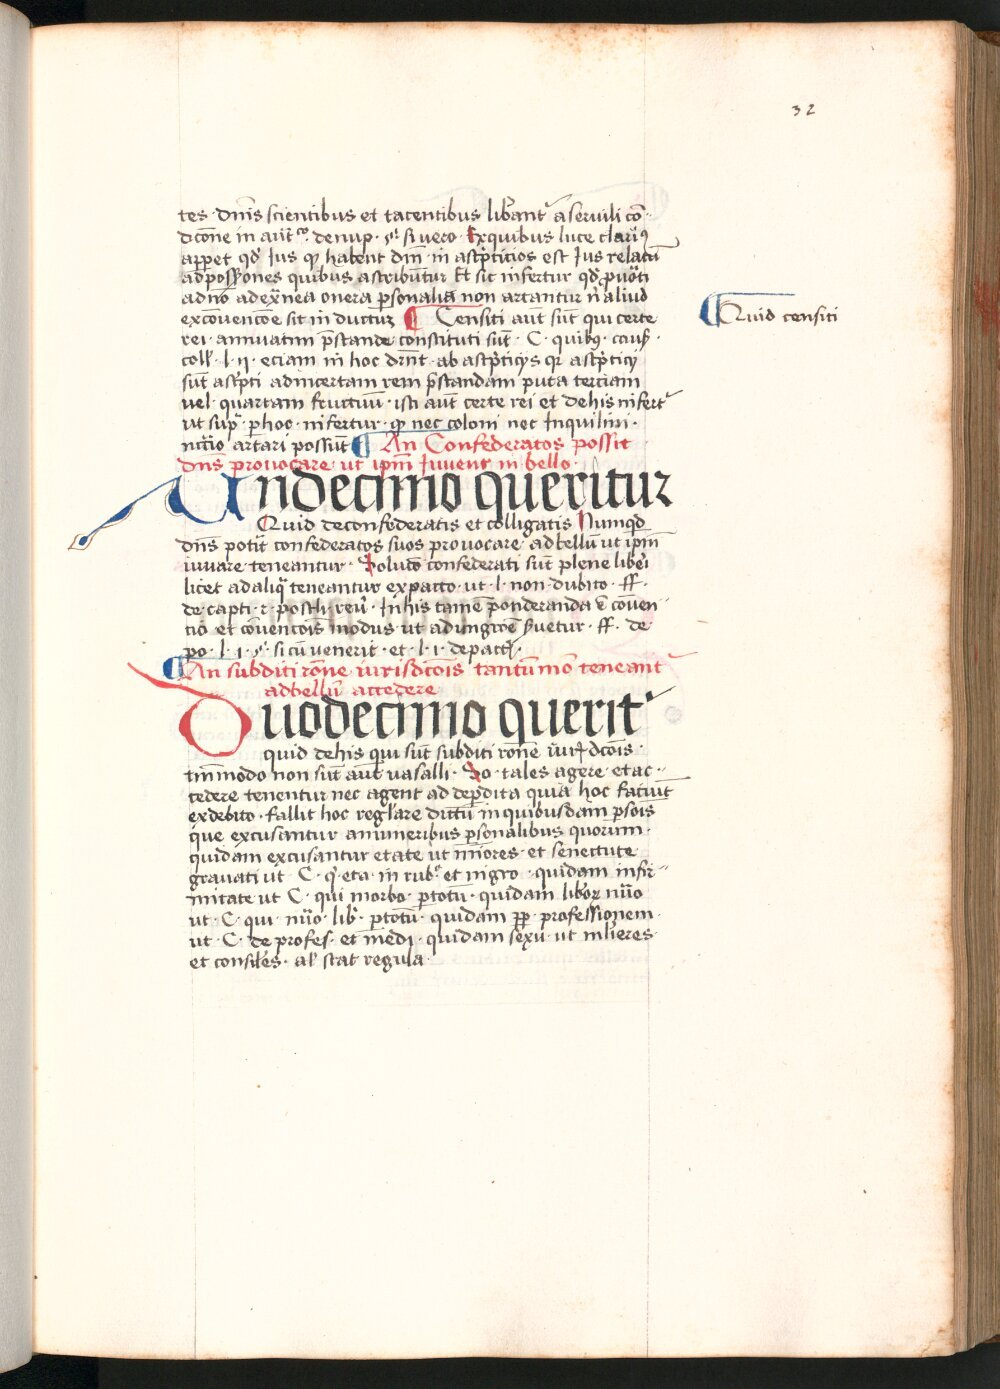 32
tes · dnis scientibus et tacentibus libant᷑ a servili co᷑
dicone in aut᷑ · de nup · si vero · Ex quibus luce clari9
apꝑet qd Jus qꝫ habent dni in asc͛pticios est Jus relatu
ad possy̅ones quibus ascribūtur Et sic infertur qd
ad no ad ex̅nea onera ꝑsonalia non artantur ni aliud
ex cōuencōe sit in ductuꝫ ¶ Censiti aut̅ sūt qui certe
¶ Quid censiti
rei annuatim p̅stande constituti sūt · C · quibꝫ · cauß ·
coll · l · ii · eciam in hoc dr̅nt · ab asc͛pticijs qꝛ asc͛pticij
sūt asc͛pti ad incertam rem p̅standam puta terciam
vel quartam fructuū · isti aūt certe rei et de his infert᷑
ut sup᷑ · ꝑ hoc · infertur · qꝫ nec coloni nec Inquilini ·
artari possūt ¶ An Confederatos possit
dn̅s provocare ut ip̅m Juvent in bello ·
Undecimo queritur
Quid de confederatis et colligatis Numqd
dn̅s potit confederatos suos provocare ad bellū ut ip̅m
iuvare teneantur · Soluco confederati sūt plene liberi
licet ad aliqͣ teneantur ex pacto ut · l · non dubito · ff ·
de capti · ⁊ · postli · reu᷑ · In his tamē ponderanda ē cōuen
tio et cōuencois modus ut ad ungwē ẜuetur · ff · de
po · l · i · § · si cū venerit · et · l · i · de pact ·
¶ An subditi rōne iurisdicōis tantūmo teneant᷑
ad bellū accedere
Duodecimo querit᷑
quid de his qui sūt subditi rōne iurisdcōis ·
tm̅modo non sūt aūt vasalli · So · tales agere et ac ·
cedere tenentur nec agent ad deꝑdita quia hoc faciūt
ex debito · fallit hoc regl̅are dictū in quibusdam ꝑsois
que excusantur a muneribus ꝑsonalibus quorum ·
quidam excusantur etate ut mi̅ores · et senectute
gravati ut · C · q̇ · eta · in rub᷑ · et nigro · quidam infir
mitate ut · C · qui morbo · ꝑ totū · quidam liboꝝ nūo
ut · C · qui · nūo · lib᷑ · ꝑ totū · quidam ꝓp · professionem ·
ut · C · de profes · et medi · quidam sexu · ut mlieres ·
et consiles · al᷑ stat regula ·